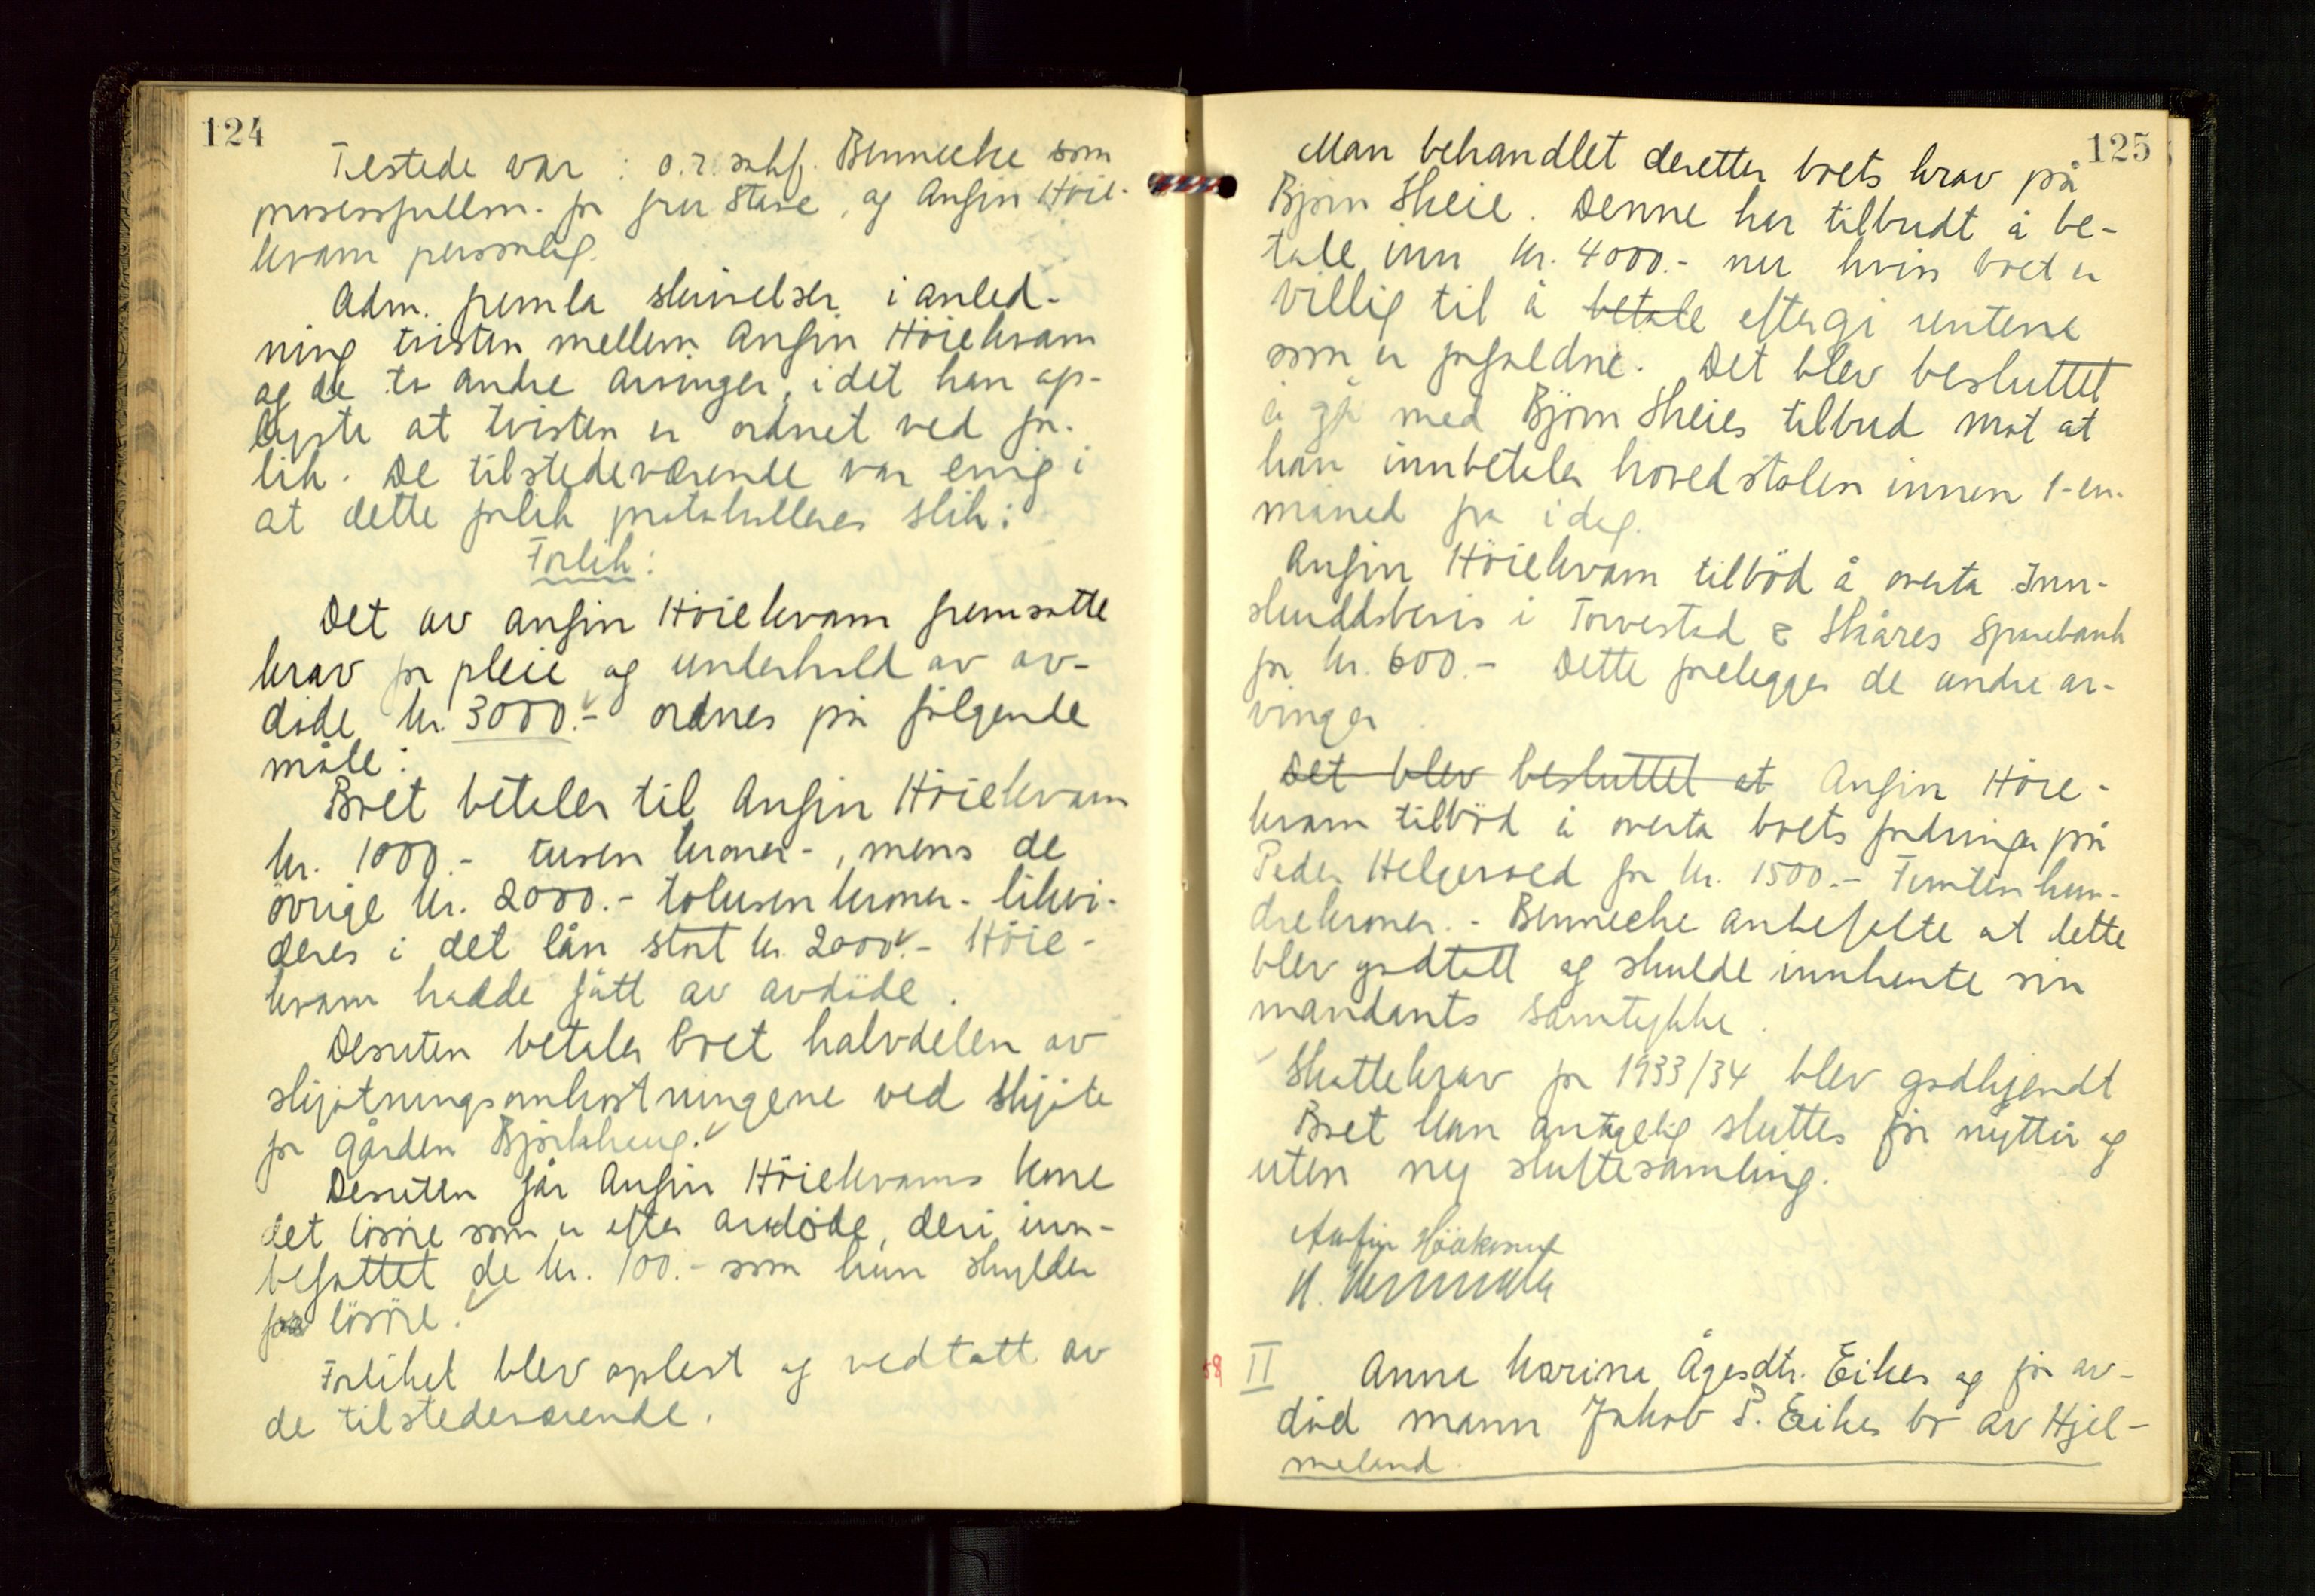 124
Tilstede var : o.r.sakf. Bennecke som
prosessfullm. for fru Stave, og Anfin Höie-
kvam personlig.
Adm. fremla skrivelser i anled-
ning tvisten mellem Anfin Höiekvam
og de to andre arvinger, idet han op-
lyste at tvisten er ordnet ved for-
lik. De tilstedeværende var enig i
at dette forlik protokolleres slik:
Forlik:
Det av Anfin Höiekvam fremsatte
krav for pleie og underhold av av-
døde kr. 3000.- ordnes på følgende
måte:
Boet betaler til Anfin Höiekvam
kr. 1000.- tusen kroner-, mens de
övrige kr. 2000.- totusen kroner- likvi-
deres i det lån stort kr. 2000.- Höie-
kvam hadde fått av avdöde.
Desuten betaler boet halvdelen av
skjøtningsomkostningene ved skjøte
for gården Björkhaug.
Desuten får Anfin Höiekvams kone
det lösöre som er efter avdøde, deri inn-
befattet de kr. 100.- som hun skylder
for lösöre.
Forliket blev oplest og vedtatt av
de tilstedeværende.
125
Man behandlet deretter boets krav på
Bjørn Skeie. Denne har tilbudt å be-
tale inn kr. 4000.- nu hvis boet er
villig til å betale eftergi rentene
som er forfaldne. Det blev besluttet
å gå med Bjørn Skeies tilbud mot at
han innbetaler hovedstolen innen 1-en-
måned fra idag.
Anfin Höiekvam tilböd å overta Inn-
skuddsbevis i Torvestad & Skåres Sparebank
for kr. 600.- Dette forelegges de andre ar-
vinger
Det blev besluttet at Anfin Höie-
kvam tilböd å overta boets fordringer på
Peder Helgeroed for kr. 1500.- Femten hun-
drekroner.- Bennecke anbefalte at dette
blev godtatt og skulde innhente sin
mandants samtykke.
Skattekrav for 1933/34 blev godkjendt
Boet kan antagelig sluttes før nyttår og
uten ny skiftesamling.
Anfin Höiekvam
II Anna Karina Ågesdtr. Eikes og før av-
død mann Jakob P. Eikes bo av Hjel-
meland